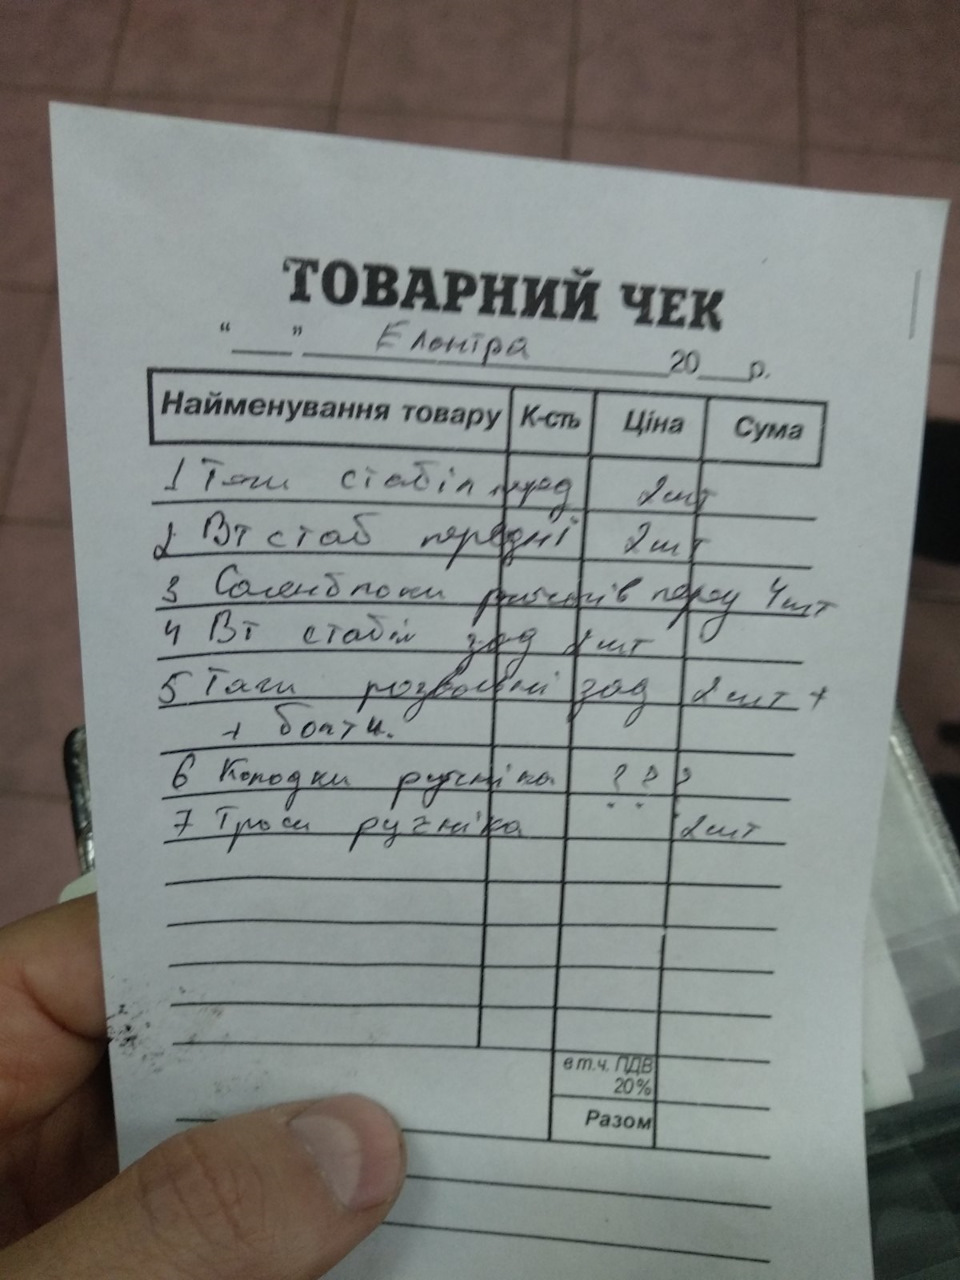 ТОВАРНИЙ ЧЕК
"___" Елонтра 20___р.
Найменування товару К-сть Ціна Сума
1 Тяги стабіл перед 2шт
2 Вт стаб передні 2шт
3 Саленблоки ричагів перед 4шт
4 Вт стабіл зад 2шт
5 Тяги розвальні зад 2шт +
+ болти.
6 Колодки ручніка ???
7 Троси ручніка 2шт
в т.ч. ПДВ
20%
Разом